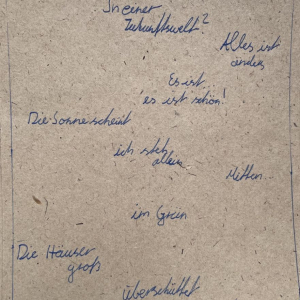 In einer
Zukunftswelt?
Alles ist
anders
Es ist...
es ist schön!
Die Sonne scheint
ich steh
allein...
Mitten...
im Grün
Die Häuser
groß
überschüttet